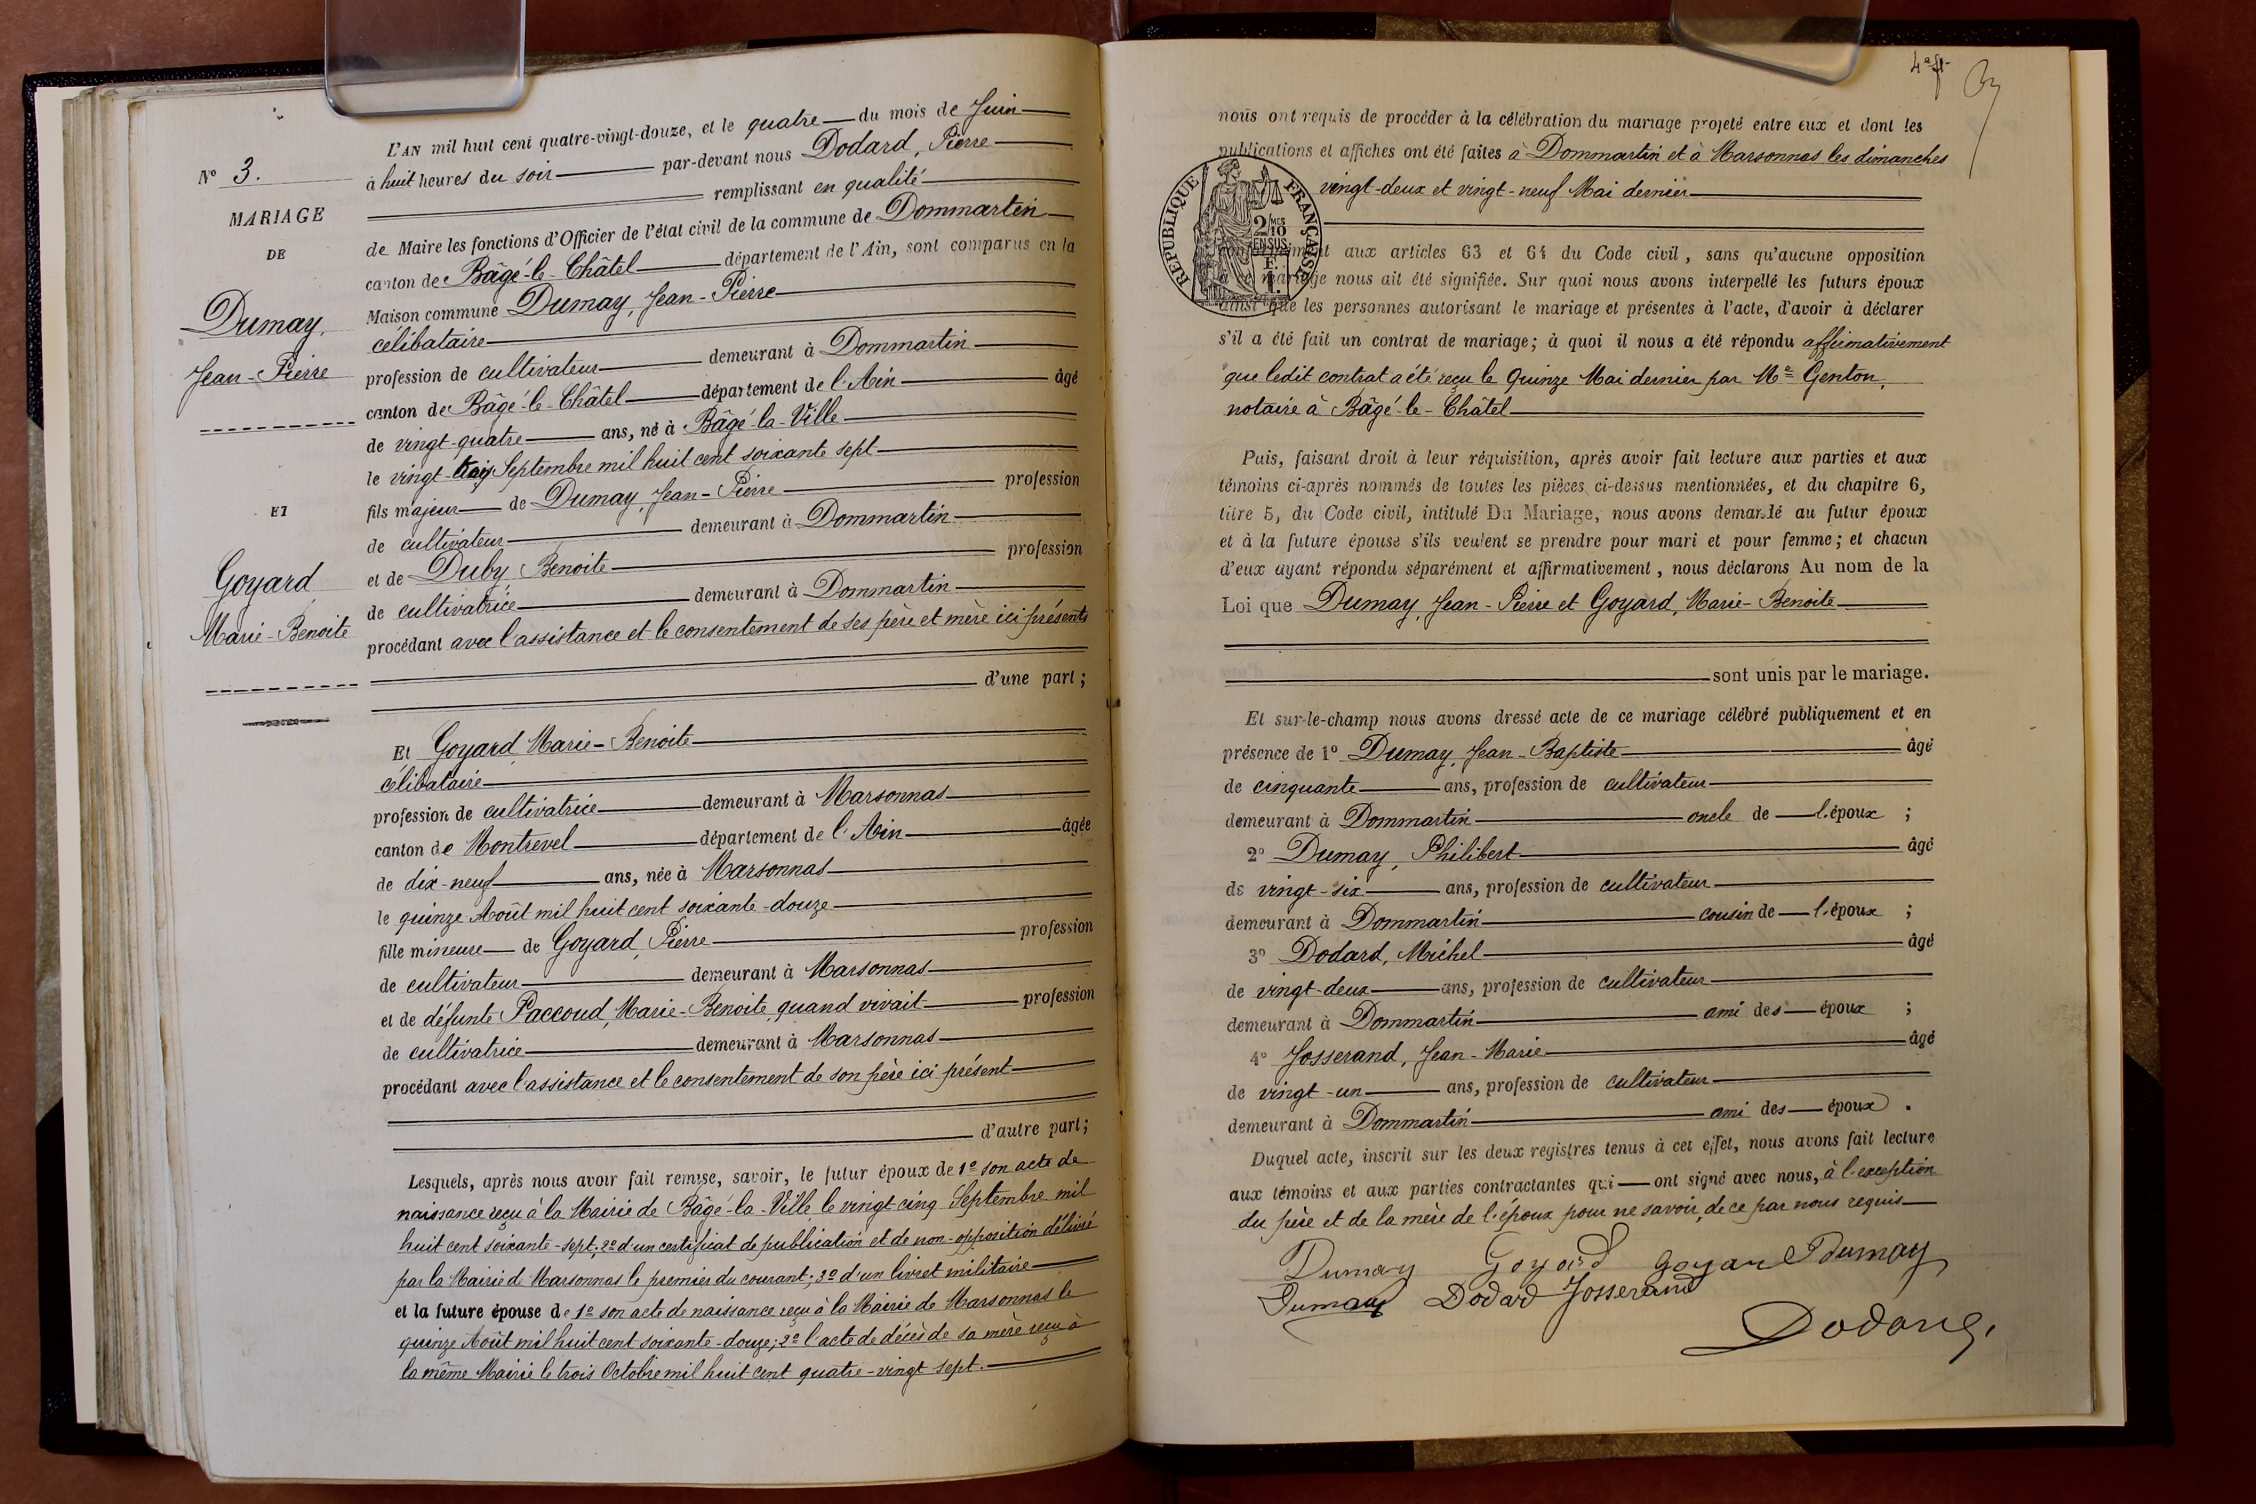 L'AN mil huit cent quatre-vingt-douze, et le quatre du mois de Juin
à huit heures du soir par-devant nous Dodard, Pierre
remplissant en qualité
de Maire les fonctions d'Officier de l'état civil de la commune de Dommartin
canton de Bâgé-le-Châtel département de l'Ain, sont comparus en la
Maison commune Dumay, Jean-Pierre
célibataire
profession de cultivateur demeurant à Dommartin
canton de Bâgé-le-Châtel département de l'Ain âgé
de vingt-quatre ans, né à Bâgé-la-Ville
le vingt-trois Septembre mil huit cent soixante sept
fils majeur de Dumay, Jean-Pierre profession
de cultivateur demeurant à Dommartin
et de Duby Benoite profession
de cultivatrice demeurant à Dommartin
procédant avec l'assistance et le consentement de ses père et mère ici présents
d'une part;
Et Goyard, Marie-Benoite
célibataire
profession de cultivatrice demeurant à Marsonnas
canton de Montrevel département de l'Ain âgée
de dix-neuf ans, née à Marsonnas
le quinze Août mil huit cent soixante-douze
fille mineure de Goyard, Pierre profession
de cultivateur demeurant à Marsonnas
et de défunte Paccoud, Marie-Benoite, quand vivait profession
de cultivatrice demeurant à Marsonnas
procédant avec l'assistance et le consentement de son père ici présent
d'autre part;
Lesquels, après nous avoir fait remise, savoir, le futur époux de 1º son acte de
naissance reçu à la Mairie de Bâgé-la-Ville le vingt cinq Septembre mil
huit cent soixante-sept; 2º d'un certificat de publication et de non-opposition délivré
par la Mairie de Marsonnas le premier du courant; 3º d'un livret militaire
et la future épouse de 1º son acte de naissance reçu à la Mairie de Marsonnas le
quinze Août mil huit cent soixante-douze; 2º l'acte de décès de sa mère reçu à
la même Mairie le trois Octobre mil huit cent quatre-vingt sept.
Nº 3.
MARIAGE
DE
Dumay,
Jean-Pierre
ET
Goyard
Marie-Benoite
nous ont requis de procéder à la célébration du mariage projeté entre eux et dont les
publications et affiches ont été faites à Dommartin et à Marsonnas les dimanches
vingt-deux et vingt-neuf Mai dernier
RÉPUBLIQUE FRANÇAISE
2/10 EN SUS
conformément aux articles 63 et 64 du Code civil, sans qu'aucune opposition
à ce mariage nous ait été signifiée. Sur quoi nous avons interpellé les futurs époux
ainsi que les personnes autorisant le mariage et présentes à l'acte, d'avoir à déclarer
s'il a été fait un contrat de mariage; à quoi il nous a été répondu affirmativement
que ledit contrat a été reçu le Quinze Mai dernier par Me Genton,
notaire à Bâgé-le-Châtel
Puis, faisant droit à leur réquisition, après avoir fait lecture aux parties et aux
témoins ci-après nommés de toutes les pièces ci-dessus mentionnées, et du chapitre 6,
titre 5, du Code civil, intitulé Du Mariage, nous avons demandé au futur époux
et à la future épouse s'ils veulent se prendre pour mari et pour femme; et chacun
d'eux ayant répondu séparément et affirmativement, nous déclarons Au nom de la
Loi que Dumay, Jean-Pierre et Goyard, Marie-Benoite
sont unis par le mariage.
Et sur-le-champ nous avons dressé acte de ce mariage célébré publiquement et en
présence de 1º Dumay, Jean-Baptiste âgé
de cinquante ans, profession de cultivateur
demeurant à Dommartin oncle de l'époux ;
2º Dumay, Philibert âgé
de vingt-six ans, profession de cultivateur
demeurant à Dommartin cousin de l'époux ;
3º Dodard, Michel âgé
de vingt-deux ans, profession de cultivateur
demeurant à Dommartin ami des époux ;
4º Josserand, Jean-Marie âgé
de vingt-un ans, profession de cultivateur
demeurant à Dommartin ami des époux.
Duquel acte, inscrit sur les deux registres tenus à cet effet, nous avons fait lecture
aux témoins et aux parties contractantes qui ont signé avec nous, à l'exception
du père et de la mère de l'époux pour ne savoir, de ce par nous requis
Dumay Goyard Goyard Dumay
Dumay Dodard Josserand
Dodard